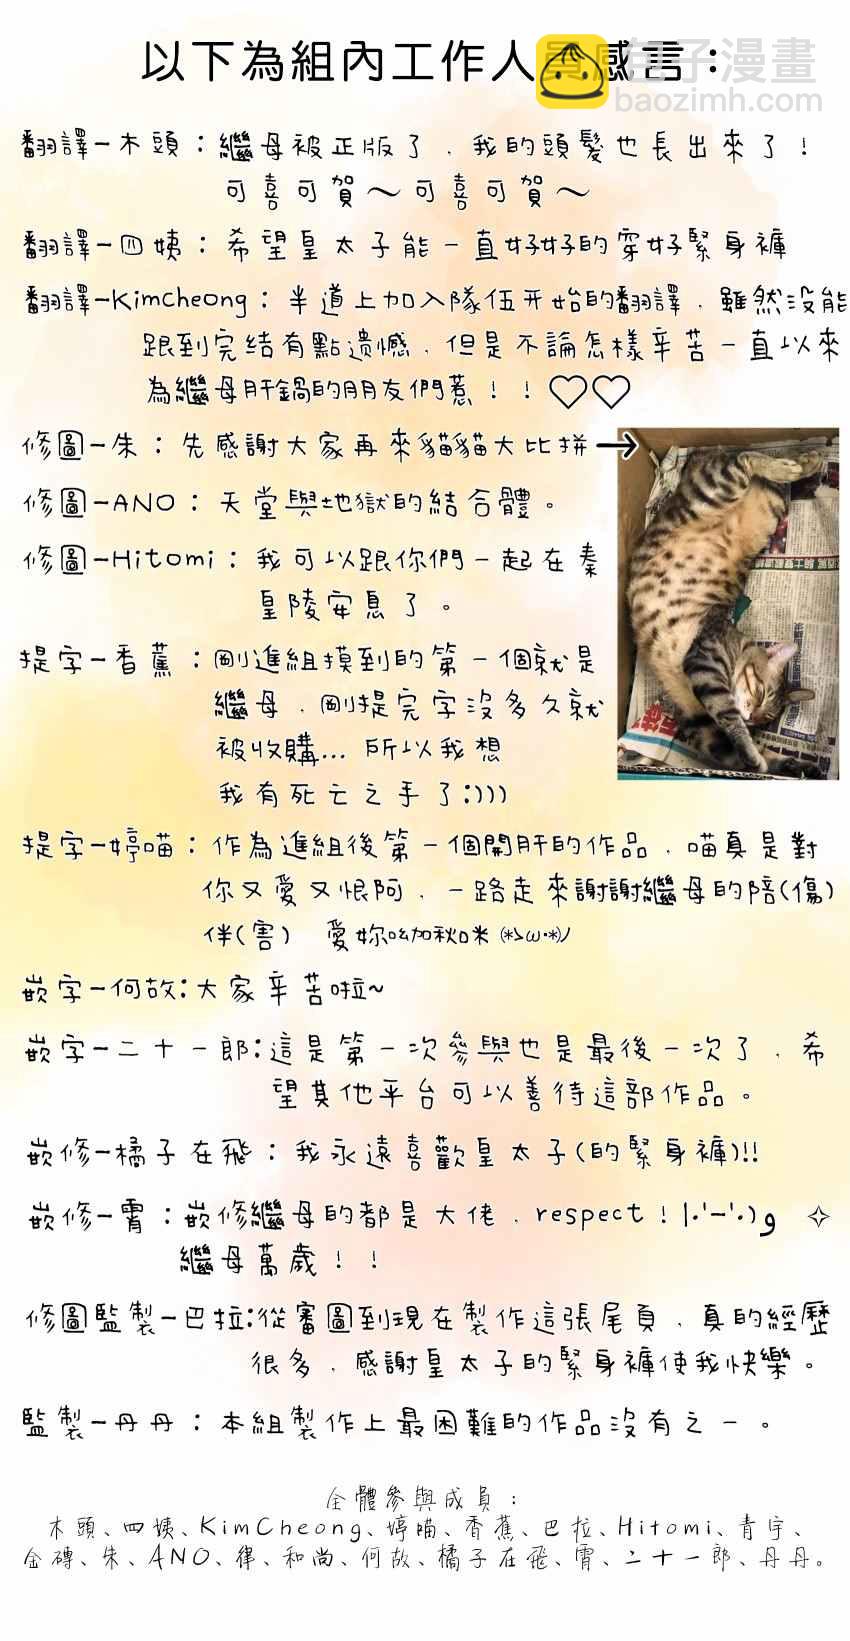 以下為組內工作人員感言：
包子漫畫
baozimh.com
翻譯-木頭：繼母被正版了，我的頭髮也長出來了！
可喜可賀～可喜可賀～
翻譯-四姨：希望皇太子能一直好好的穿好緊身褲
翻譯-Kimcheong：半道上加入隊伍开始的翻譯，雖然没能
跟到完结有點遗憾，但是不論怎樣辛苦一直以來
為繼母肝鍋的朋友們惹！！♡♡
修圖-朱：先感謝大家再來貓貓大比拼→
修圖-ANO：天堂與地獄的結合體。
修圖-Hitomi：我可以跟你們一起在秦
皇陵安息了。
提字-香蕉：剛進組摸到的第一個就是
繼母，剛提完字沒多久就
被收購...所以我想
我有死亡之手了:)))
提字-婷喵：作為進組後第一個開肝的作品，喵真是對
你又愛又恨阿，一路走來謝謝繼母的陪(傷)
伴(害) 愛妳呦加秋咪(*>ω･*)ﾉ
嵌字-何故:大家辛苦啦~
嵌字-二十一郎:這是第一次參與也是最後一次了，希
望其他平台可以善待這部作品。
嵌修-橘子在飛：我永遠喜歡皇太子(的緊身褲)!!
嵌修-霄：嵌修繼母的都是大佬，respect！|･'-'･)و ✧
繼母萬歲！！
修圖監製-巴拉:從審圖到現在製作這張尾頁，真的經歷
很多，感謝皇太子的緊身褲使我快樂。
監製-丹丹：本組製作上最困難的作品沒有之一。
全體參與成員：
木頭、四姨、KimCheong、婷喵、香蕉、巴拉、Hitomi、青宇、
金磚、朱、ANO、律、和尚、何故、橘子在飛、霄、二十一郎、丹丹。